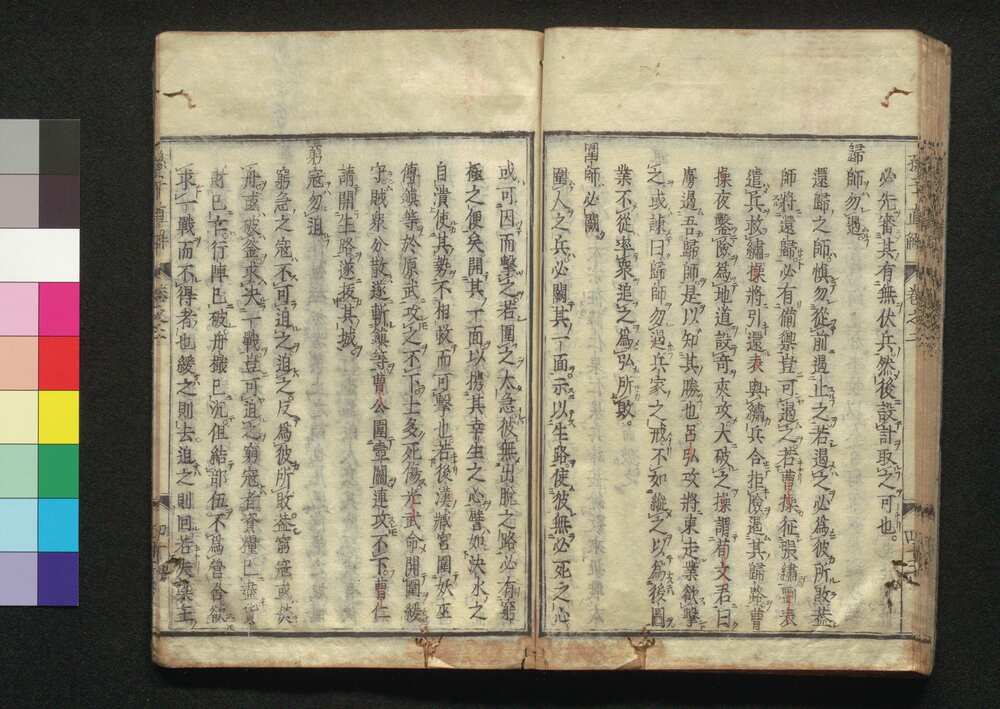 必先審其有無伏兵然後設計取之可也
歸師勿遏
還歸之師愼勿從前遏止之若遏之必爲彼所敗蓋
師將還歸必有備禦豈可遏之若曹操征張繡劉表
遣兵救繡操將引還表與繡兵合拒險遏其歸路曹
操夜鑿險爲地道設奇夾攻大破之操謂荀文君曰
虜遏吾歸師是以知其勝也呂弘攻將東走業欲擊
之或諫曰歸師勿遏兵家之戒不如縱之以爲後圖
業不從率衆追之爲弘所敗
圍師必闕
圍人之兵必闕其一面示以生路使彼無必死之心
或可因而擊之若圍之太急彼無出脫之路必有窮
極之便矣開其一面以攜其幸生之心譬如決水之
自潰使其勢不相救而可擊也若後漢臧宮圍妖巫
傅鎮等於原武攻之不下士多死傷光武命開圍緩
守賊衆分散遂斬鎮等曹公圍壺關連攻不下曹仁
請開生路遂拔其城
窮寇勿迫
窮急之寇不可迫之迫之反爲彼所敗蓋窮寇或焚
舟或破釜求大一戰豈可迫之窮寇者資糧已
財已亡行陣已破舟檝已沉但結部伍不爲營舍欲
求一戰而不得者也緩之則去迫之則回若夫桀王
孫子直解 卷之二